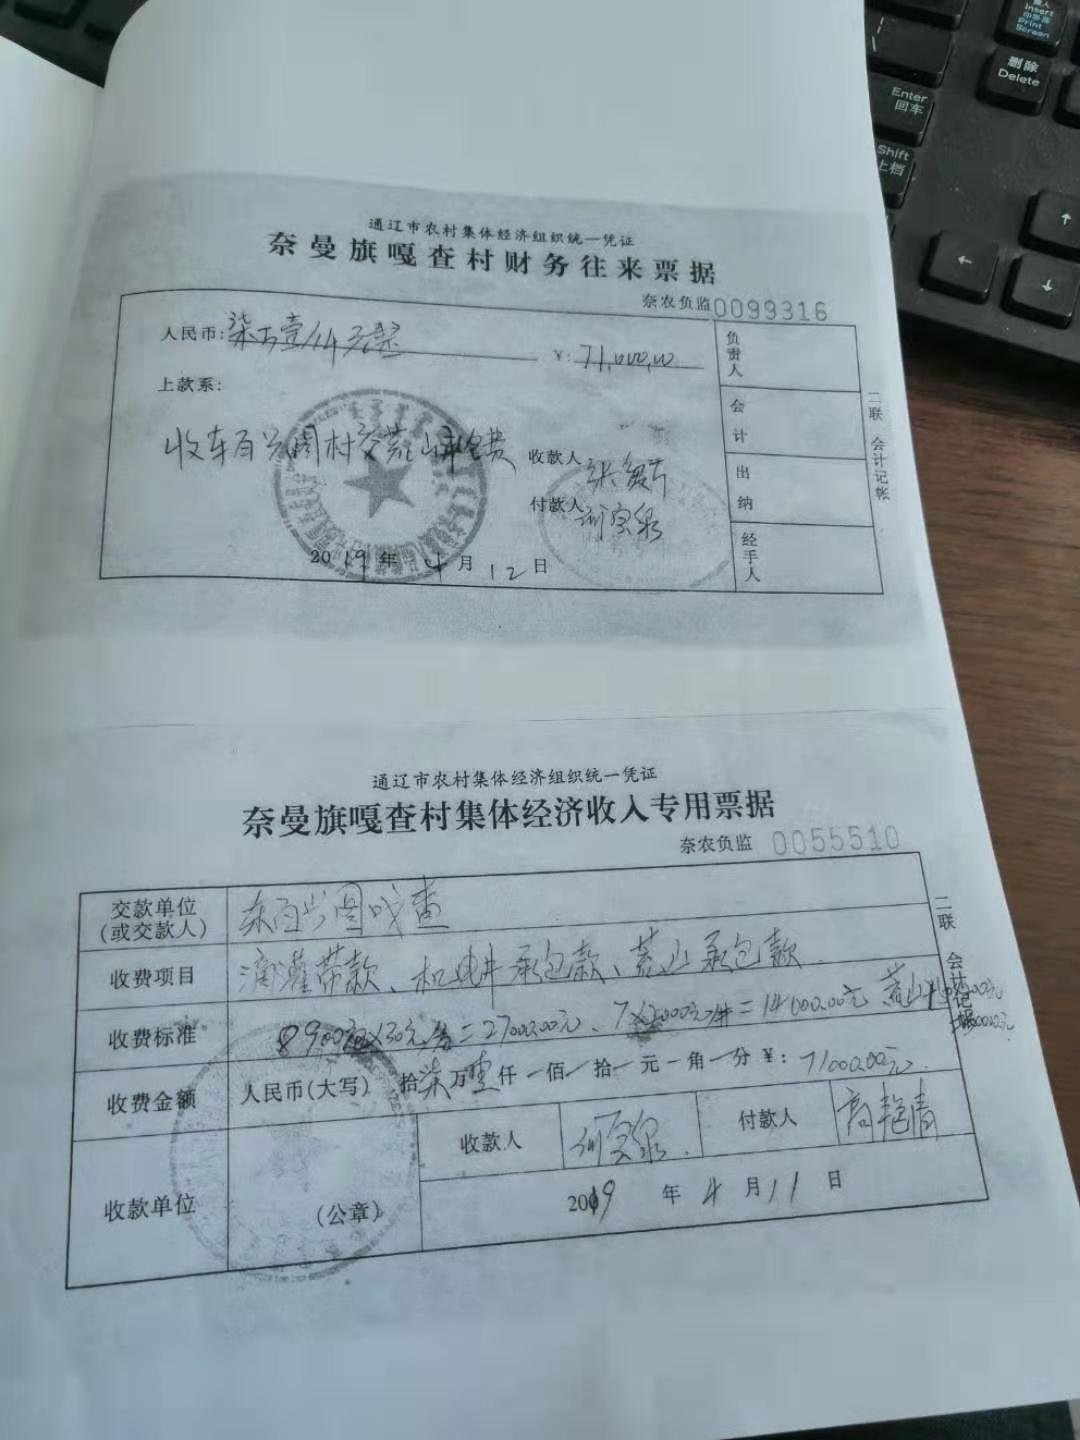 Insert
Print
Screen
删除
Delete
Enter
回车
Shift
上档
←
↑
↓
通辽市农村集体经济组织统一凭证
奈曼旗嘎查村财务往来票据
奈农负监0099316
人民币:柒万壹仟元整 ¥:71,000,00
上款系:
收东百兴图村交荒山承包费
收款人
付款人
2019年4月12日
负责人
会计
出纳
经手人
二联 会计记帐
通辽市农村集体经济组织统一凭证
奈曼旗嘎查村集体经济收入专用票据
奈农负监 0055510
交款单位(或交款人) 东百兴图嘎查
收费项目 滴灌带款、机电井承包款、荒山承包款.
收费标准 900亩×30元/亩=27000.00元、7×2000元/井=14000.00元 荒山
收费金额 人民币(大写) 拾柒万壹仟一佰一拾一元一角一分 ¥:71000.00元.
收款单位 (公章) 收款人 付款人 高艳清
2019年4月11日
二联 会计记